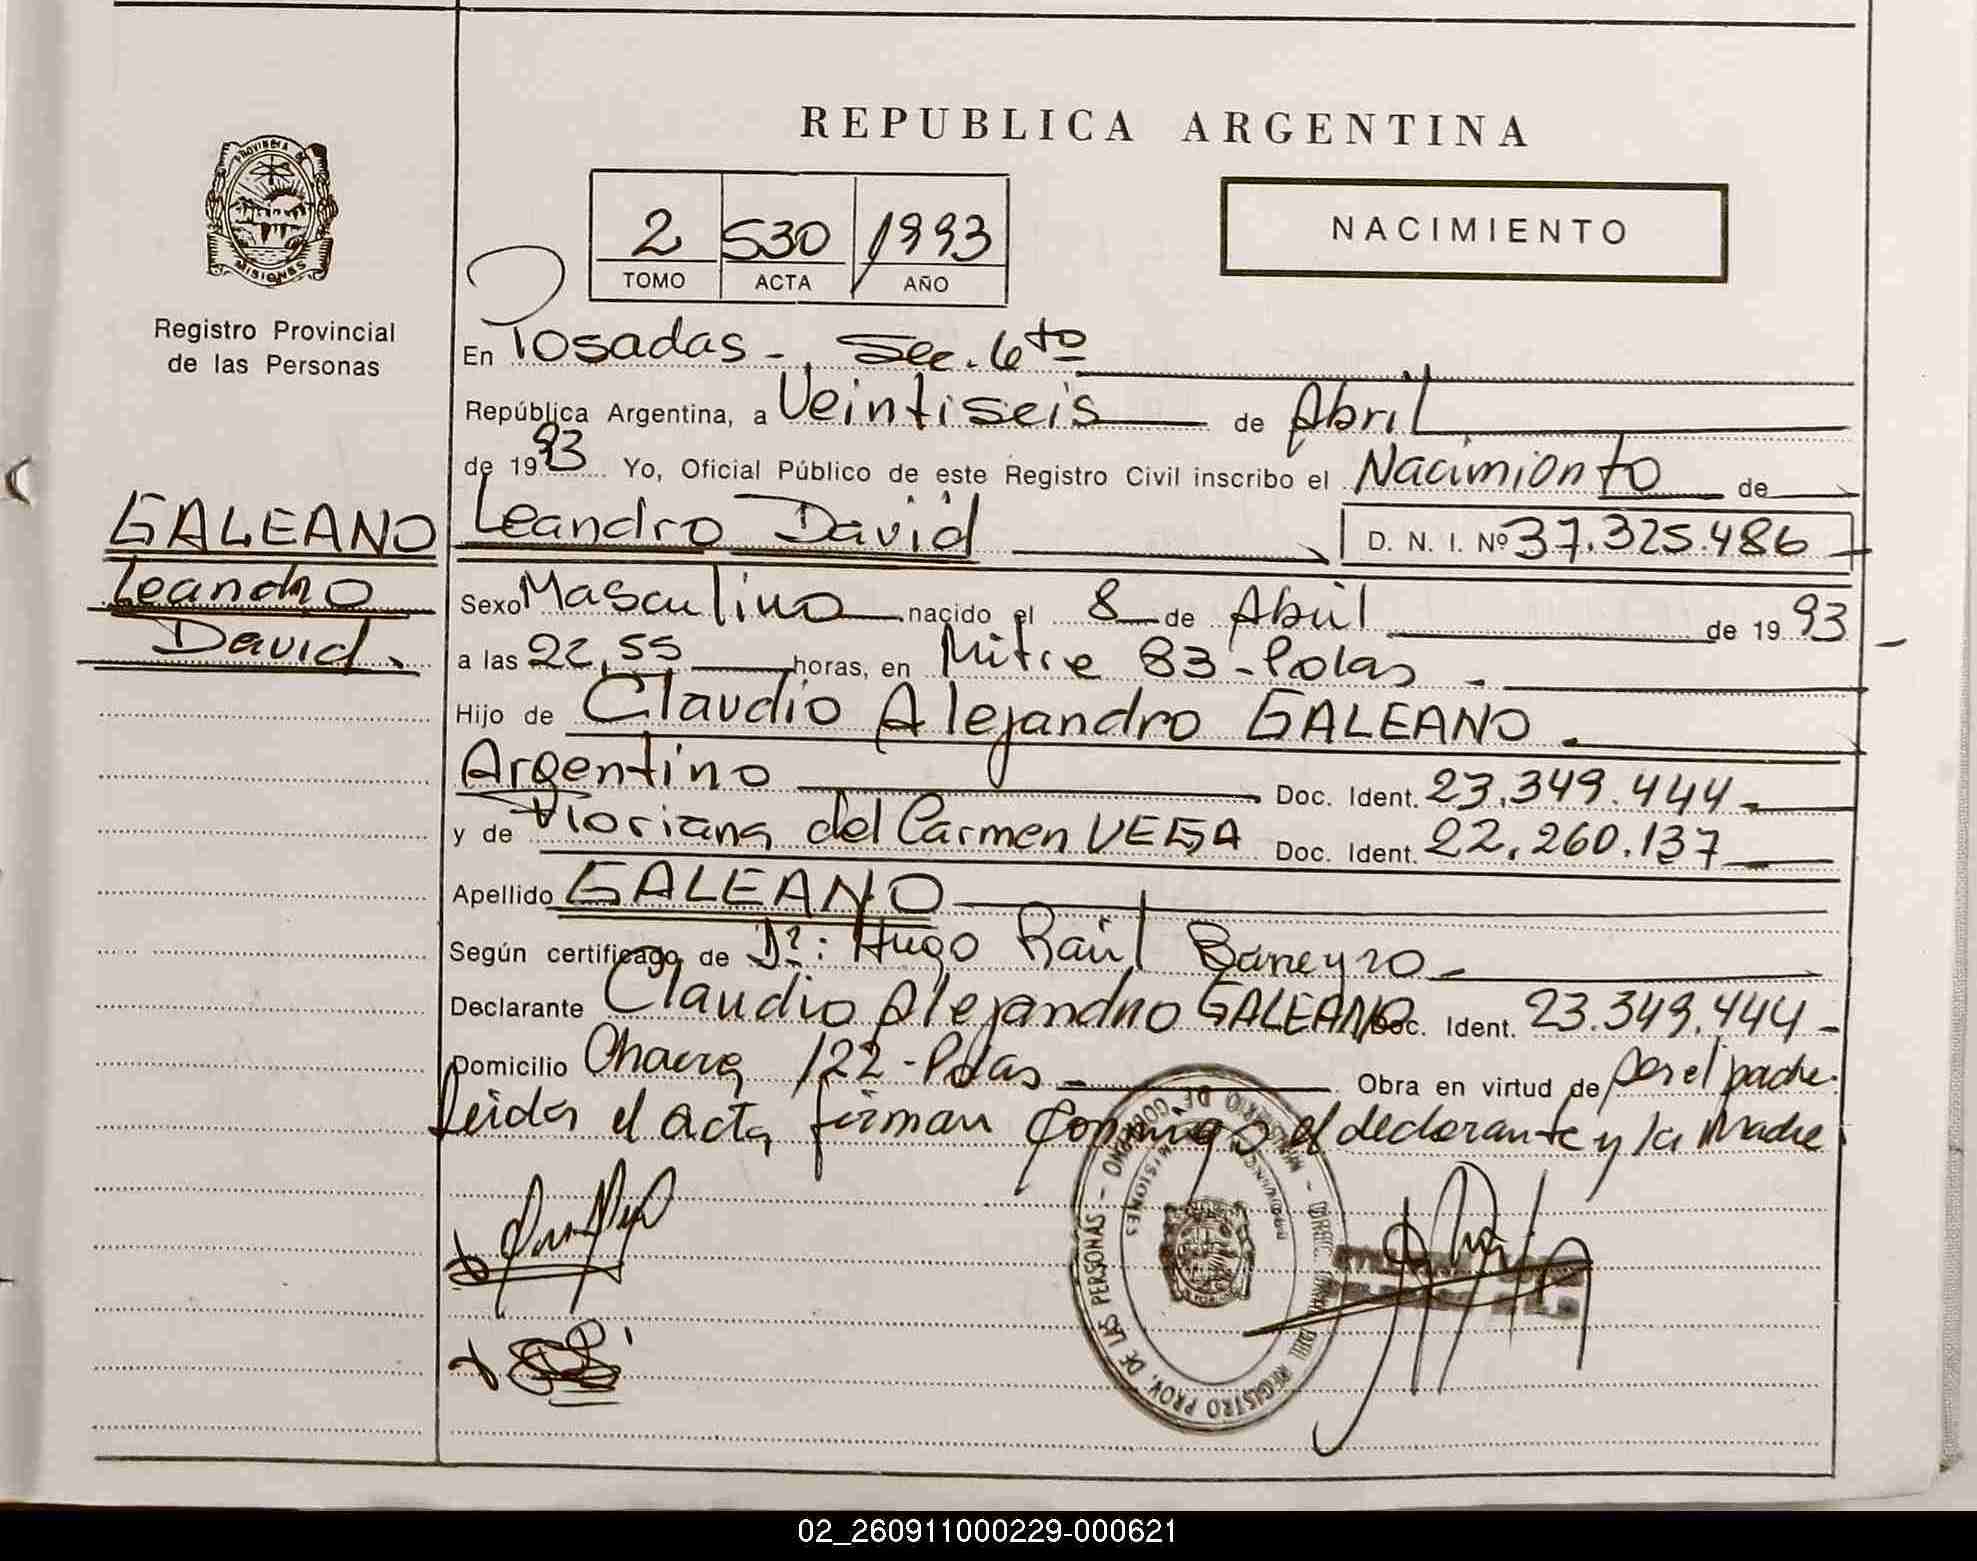 REPUBLICA ARGENTINA
PROVINCIA DE
MISIONES
Registro Provincial
de las Personas
2 530 1993
TOMO ACTA AÑO
NACIMIENTO
En Posadas - Sec. 6to
República Argentina, a Veintiseis de Abril
de 1993 Yo, Oficial Público de este Registro Civil inscribo el Nacimiento de
GALEANO
Leandro
David.
Leandro David D. N. I. Nº 37.325.486
Sexo Masculino nacido el 8 de Abril de 1993
a las 22,55 horas, en Mitre 83 - Pdas -
Hijo de Claudio Alejandro GALEANO.
Argentino Doc. Ident. 23.349.444
y de del Carmen VEGA Doc. Ident. 22.260.137
Apellido GALEANO
Según certificado de Dr: Hugo Raúl Baneyro
Declarante Claudio Alejandro GALEANO Doc. Ident. 23.349.444
Domicilio Chacra 122 - Pdas - Obra en virtud de ser el padre.
Leida el acta firman conmigo el declarante y la Madre.
REGISTRO PROV. DE LAS PERSONAS
MISIONES
02_260911000229-000621